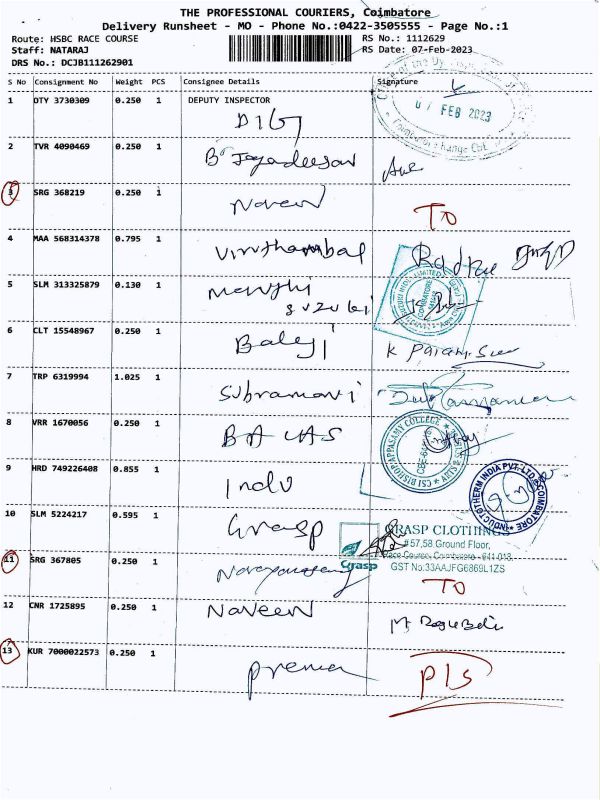 THE PROFESSIONAL COURIERS, Coimbatore
Delivery Runsheet - MO - Phone No.:0422-3505555 - Page No.:1
Route: HSBC RACE COURSE RS No.: 1112629
Staff: NATARAJ RS Date: 07-Feb-2023
DRS No.: DCJB111262901
S No Consignment No Weight PCS Consignee Details Signature
1 DTY 3730309 0.250 1 DEPUTY INSPECTOR
DIG
07 FEB 2023
2 TVR 4090469 0.250 1
3 SRG 368219 0.250 1 Naveen
TO
4 MAA 568314378 0.795 1 Viruthambal
5 SLM 313325879 0.130 1 Maruthi
Suzuki
COIMBATORE
6 CLT 15548967 0.250 1 Balaji
7 TRP 6319994 1.025 1 Subramani
8 VRR 1670056 0.250 1
CSI BISHOP APPASAMY COLLEGE
9 HRD 749226408 0.855 1 Indu
INDUCTOTHERM INDIA PVT. LTD. COIMBATORE
10 SLM 5224217 0.595 1 Grasp
GRASP CLOTHINGS
#57,58 Ground Floor,
Race Course, Coimbatore - 641 018.
Grasp GST No:33AAJFG6869L1ZS
11 SRG 367805 0.250 1
TO
12 CNR 1725895 0.250 1 Naveen
13 KUR 7000022573 0.250 1 Prema